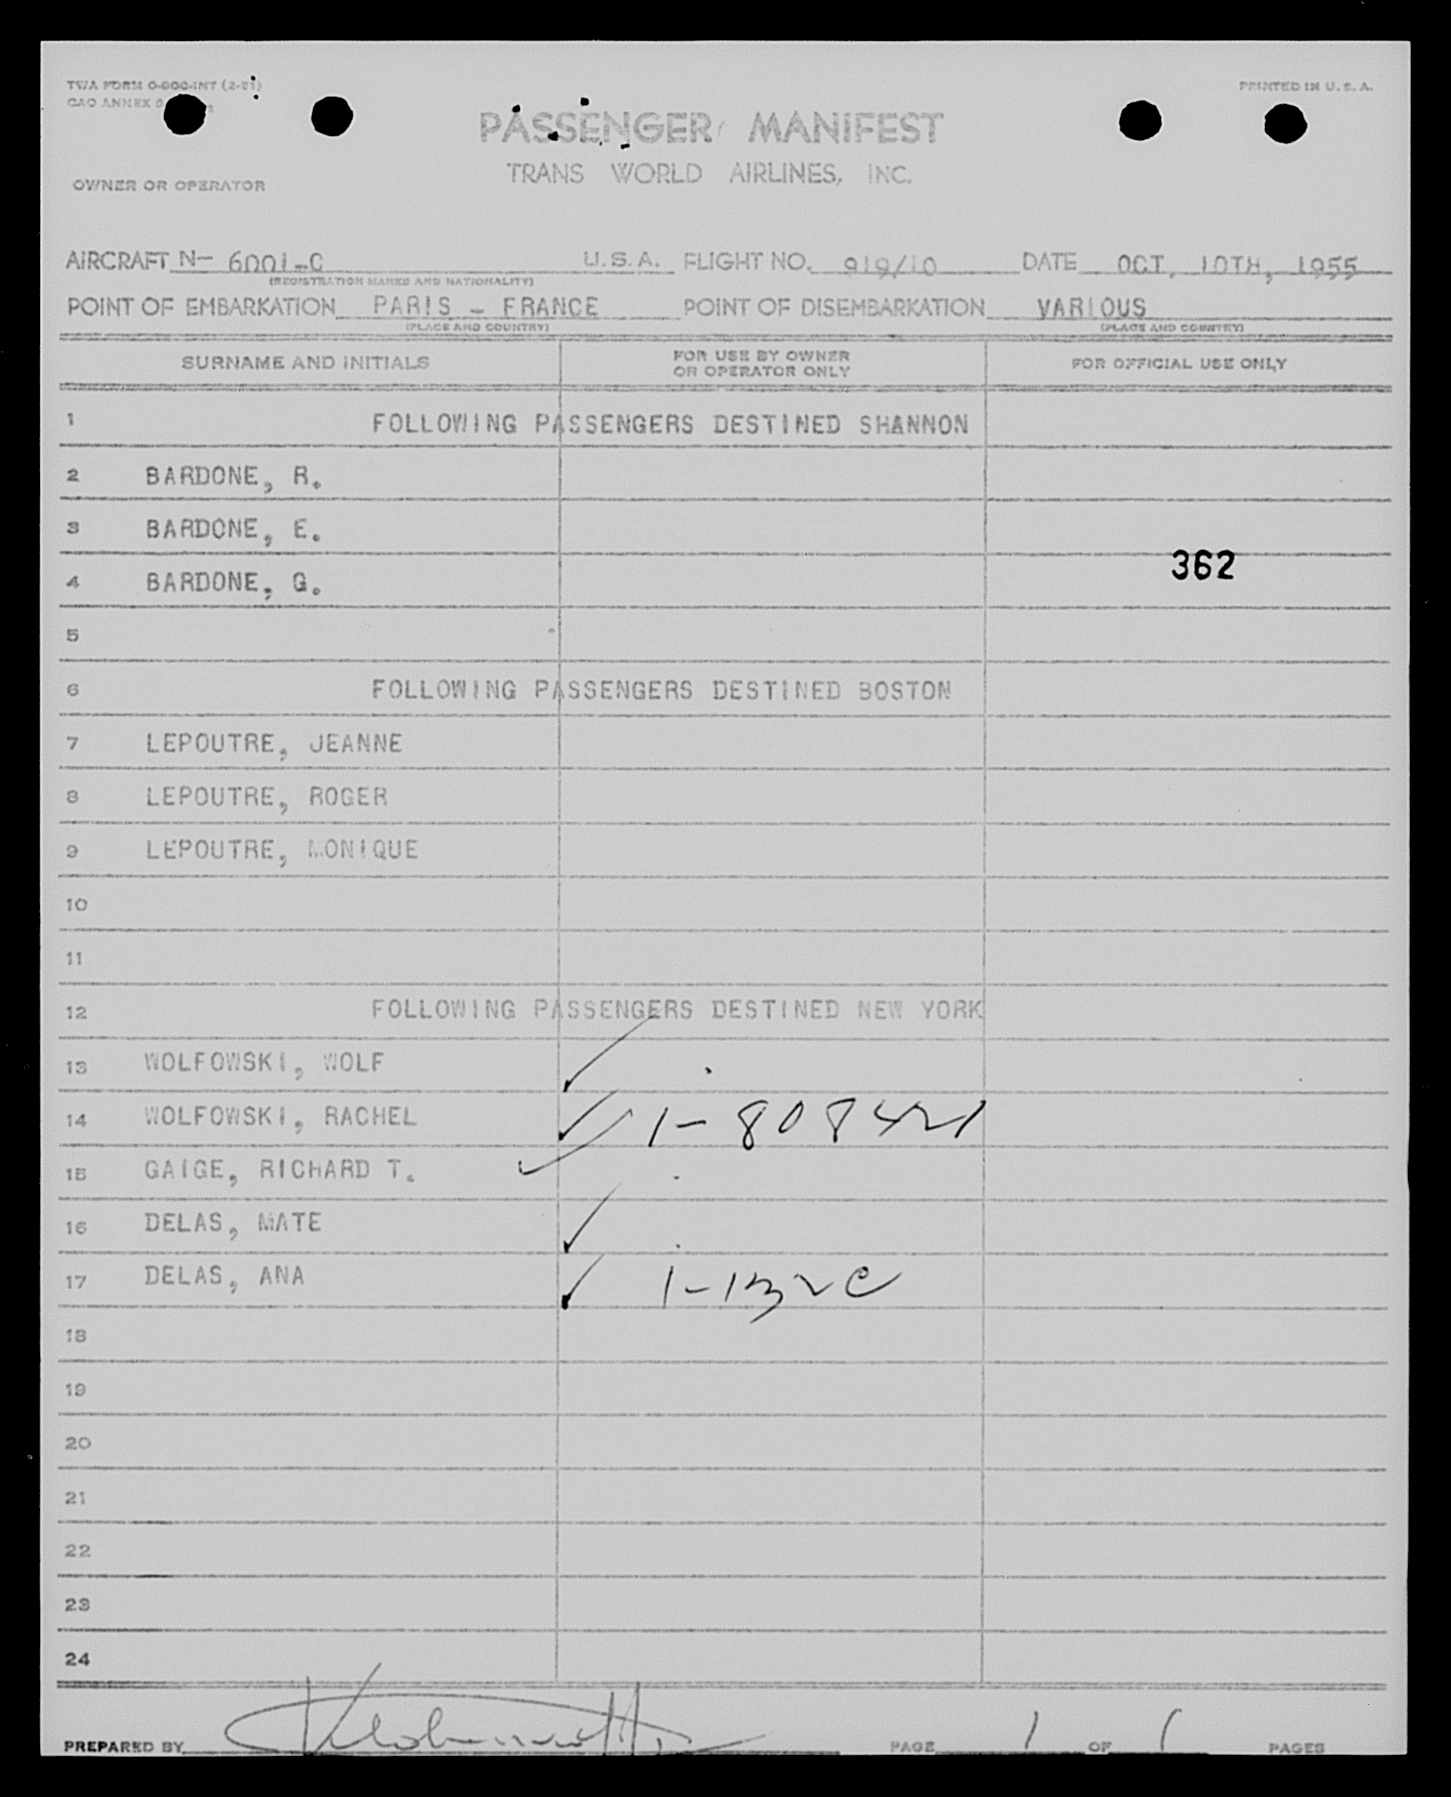 TWA FORM O-800-INT (2-51)
PRINTED IN U. S. A.
CAO ANNEX 9
PASSENGER MANIFEST
TRANS WORLD AIRLINES, INC.
OWNER OR OPERATOR
AIRCRAFT N- 6001-C U.S.A. FLIGHT NO. 919/10 DATE OCT. 10TH, 1955
(REGISTRATION MARKS AND NATIONALITY)
POINT OF EMBARKATION PARIS - FRANCE POINT OF DISEMBARKATION VARIOUS
(PLACE AND COUNTRY) (PLACE AND COUNTRY)
SURNAME AND INITIALS FOR USE BY OWNER OR OPERATOR ONLY FOR OFFICIAL USE ONLY
1 FOLLOWING PASSENGERS DESTINED SHANNON
2 BARDONE, R.
3 BARDONE, E.
362
4 BARDONE, G.
5
6 FOLLOWING PASSENGERS DESTINED BOSTON
7 LEPOUTRE, JEANNE
8 LEPOUTRE, ROGER
9 LEPOUTRE, MONIQUE
10
11
12 FOLLOWING PASSENGERS DESTINED NEW YORK
13 WOLFOWSKI, WOLF
14 WOLFOWSKI, RACHEL
15 GAIGE, RICHARD T.
16 DELAS, MATE
17 DELAS, ANA
18
19
20
21
22
23
24
PREPARED BY PAGE 1 OF 1 PAGES